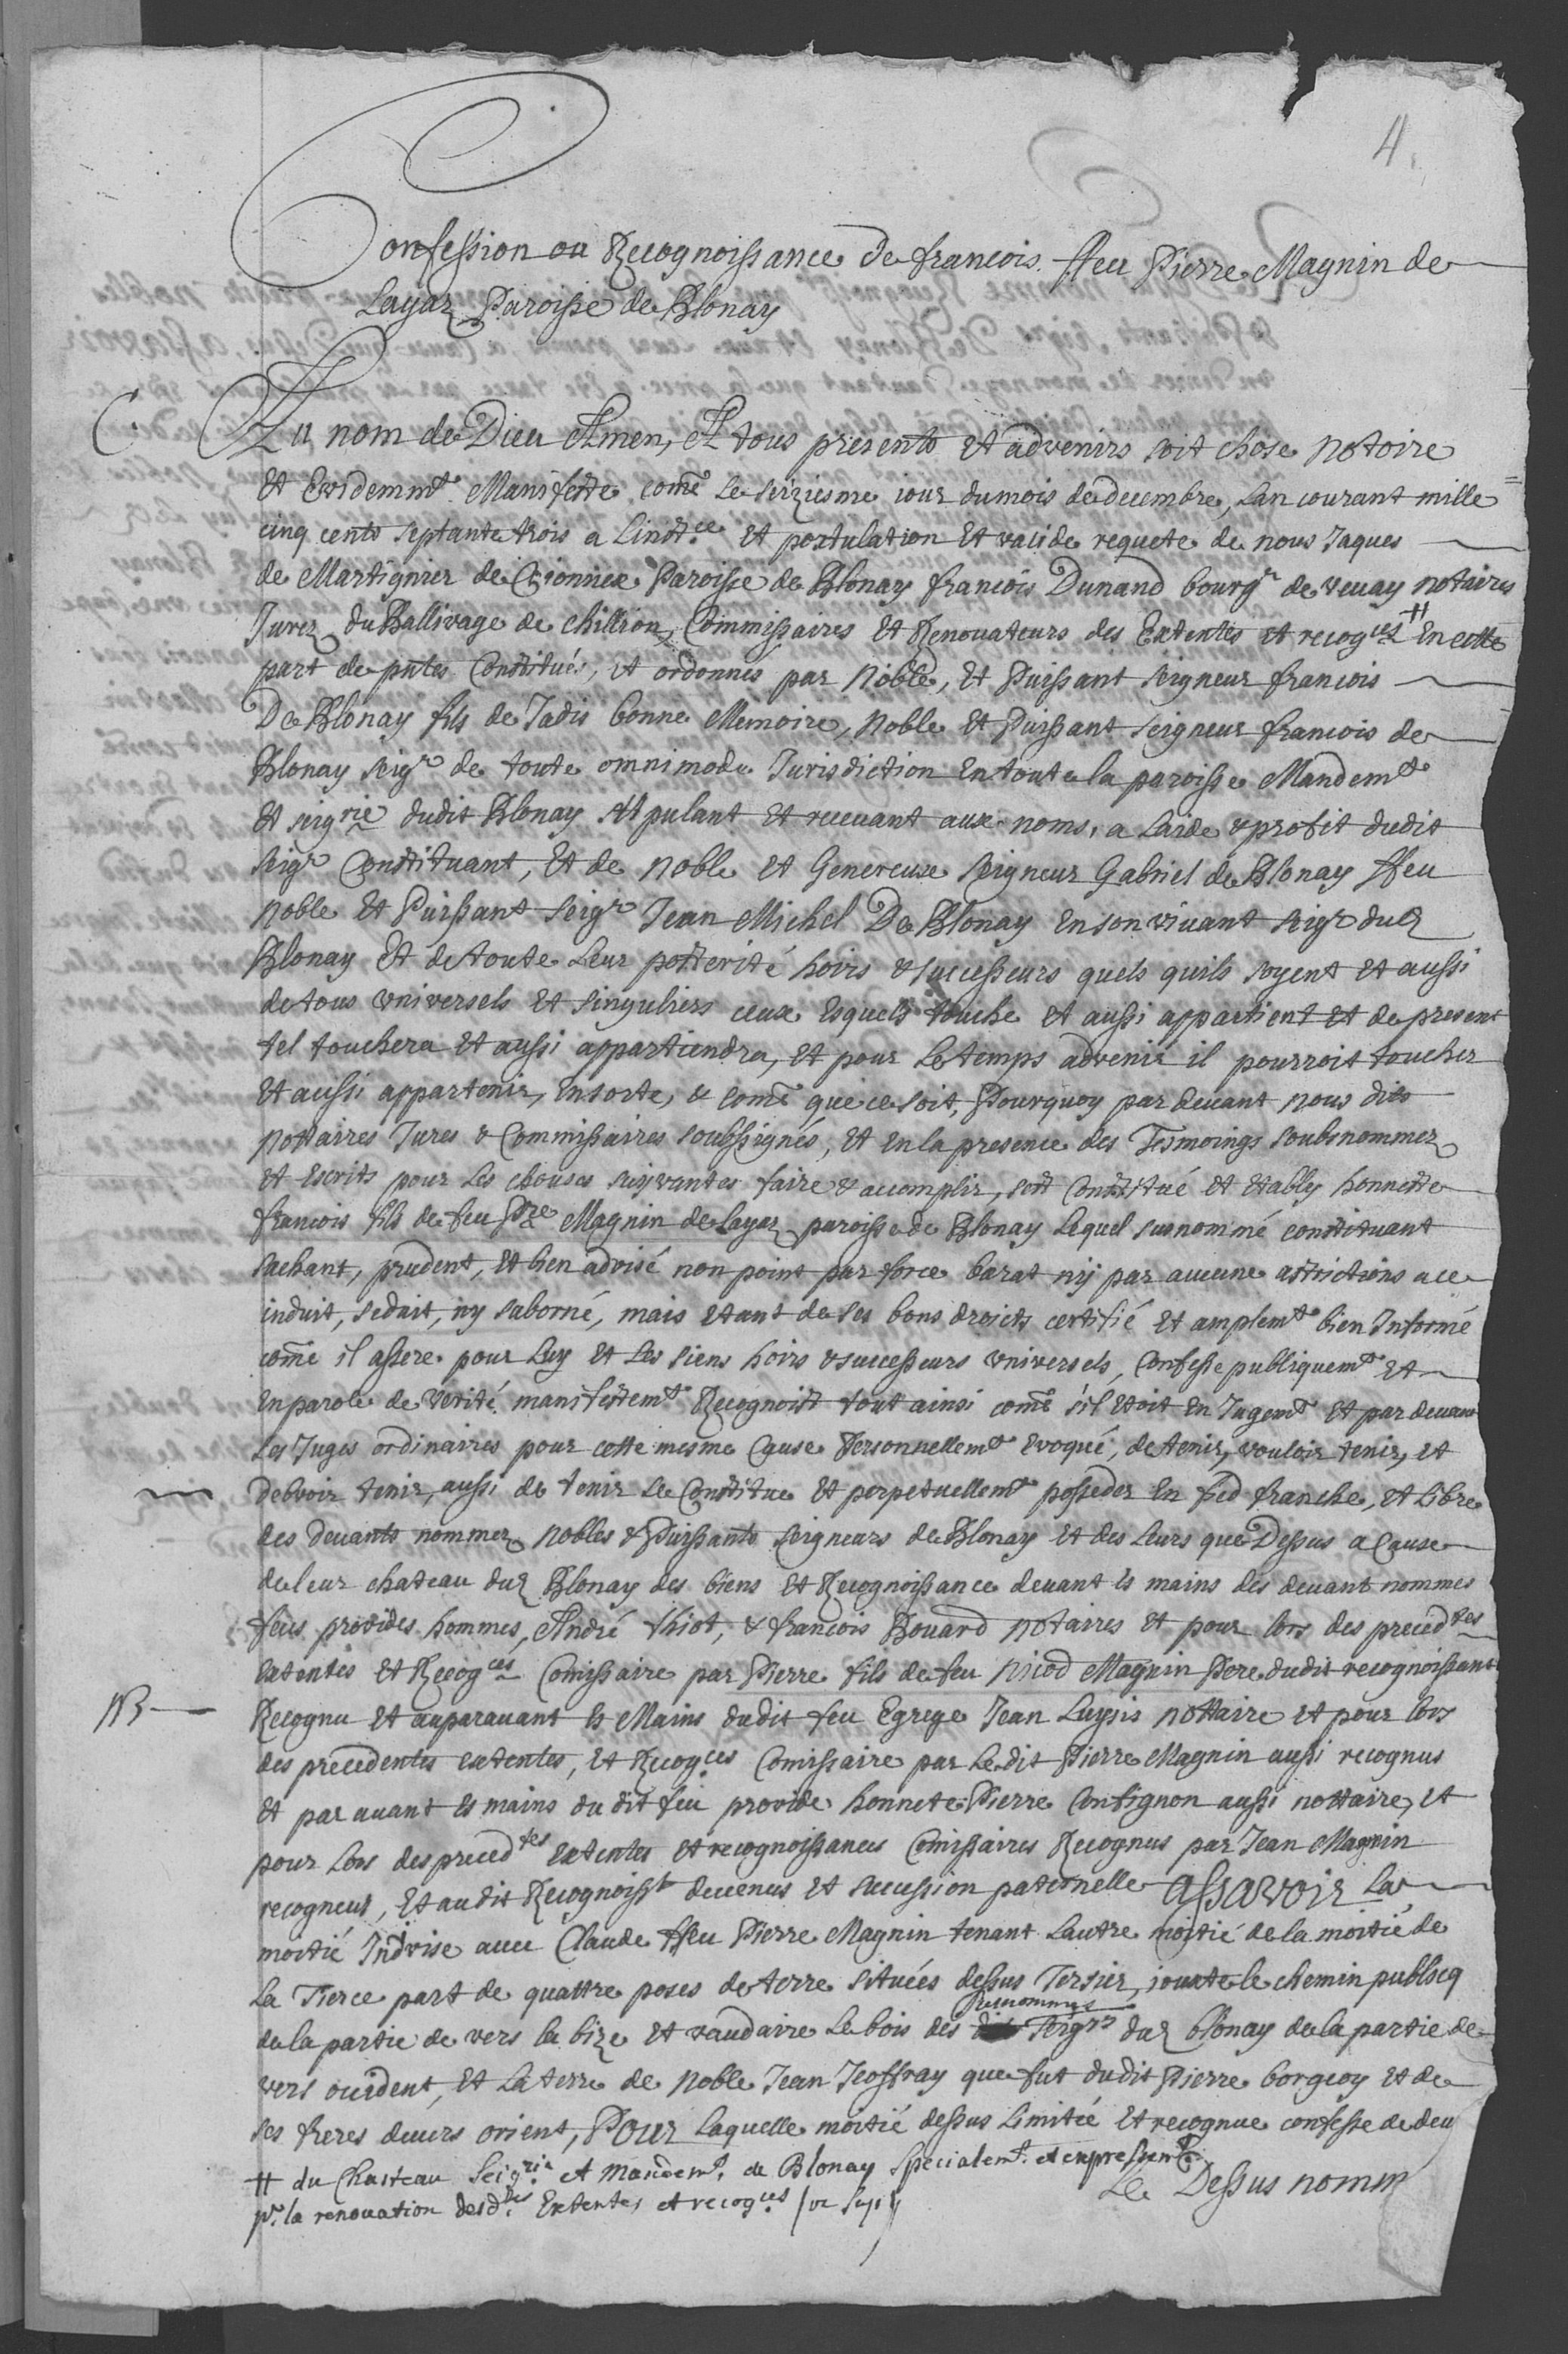 4.
Confession ou Recognoissance de francois ffeu Pierre Magnin de
Layaz Paroisse de Blonay
C. Au nom de Dieu Amen, A tous presents et advenirs soit chose notoire
et Evidemmt Manifeste comē le seiziesme iour du mois de decembre, lan courant mille
cinq cents septante trois a Linstce et postulation et valide requete de nous Jaques
de Martignier de Paroisse de Blonay francois Dunand bourgr de vevay notaires
Jurez du Ballivage de chillion, Commissaires et Renovateurs des Extentes et recogces ++ En cette
part deputés Constitués, et ordonnés par Noble, et Puissant seigneur francois
De Blonay fils de Jadis bonne Memoire, Noble et Puissant seigneur francois de
Blonay seigr de toute omnimode Jurisdiction en toute la paroisse Mandemt
et seigrie dudit Blonay stipulant et recevant aux noms, a laide & profit dudit
seigr Constituant, et de Noble et Genereux seigneur Gabriel de Blonay ffeu
Noble et Puissant seigr Jean Michel De Blonay en son vivant seigr dud
Blonay et de toute leur posterité hoirs & successeurs quels quils soyent et aussi
de tous universels et singuliers ceux esquels touche et aussi appartient et de present
tel touchera et aussi appartiendra, et pour le temps advenir il pourroit toucher
et aussi appartenir, en sorte, & comē que ce soit, Pourquoy par devant nous dits
nottaires Jures & Commissaires soubssignés, et en la presence des Tesmoings soubsnommez
et escrits pour les chouses suyvantes faire & accomplir, soit Constitué et Etably honneste
francois fils de feu Pre Magnin de Layaz paroisse de Blonay Lequel susnommé constituant
sachant, prudent, et bien advisé non point par force barat nij par aucune astrictions a ce
induit, seduit, ny saborné, mais etant de ses bons droicts certifié et amplemt bien Informé
comē il assere pour Luy et les siens hoirs & successeurs universels, Confesse publiquemt et
en parole de verité manifestemt Recognoist tout ainsi comē s'il etoit en Jugemt et par devant
Les Juges ordinaires pour cette mesme Cause Personnellemt evoqué, de tenir, vouloir tenir, et
debvoir tenir, aussi de tenir se Constitue et perpetuellemt posseder en fied franche, et libre
des devants nommez nobles & Puissants seigneurs de Blonay et des Leurs que Dessus a Cause
de leur chateau dud Blonay des biens et Recognoissance devant es mains des devant nommes
feus provides hommes, André thiot, & francois Bouard notaires et pour lors des precedtes
extentes et Recogces Comissaire par Pierre fils de feu Nicod Magnin Pere dudit recognoissant
NB Recognu et auparavant es Mains dudit feu Egrege Jean Luysis nottaire et pour lors
des precedentes extentes, et Recogces Comissaire par Ledit Pierre Magnin aussi recognus
et par avant es mains du dit feu provide honnete Pierre Contignon aussi nottaire, et
pour Lors des precedtes extentes et recognoissances Comissaires Recognus par Jean Magnin
recogneus, et audit Recognoisst devenus et succession paternelle Assavoir La
moitié Indivise avec Claude ffeu Pierre Magnin tenant Lautre moitié de la moitié de
La Tierce part de quattre poses de terre situées dessus Tersier, jouxte le chemin publicq
de la partie de vers la bize et vaudaire Le bois des Prenommes seigrs dud blonay de la partie de
vers occident, et La terre de Noble Jean Jeoffray que fut dudit Pierre borgeoy et de
ses freres devers orient, Pour Laquelle moitié dessus Limitée et recognue confesse de deu
++ du Chasteau Seigrie et Mandemt de Blonay specialemt et expressemt
pr la renovation desdtes Extentes et recogces
Le Dessus nomm